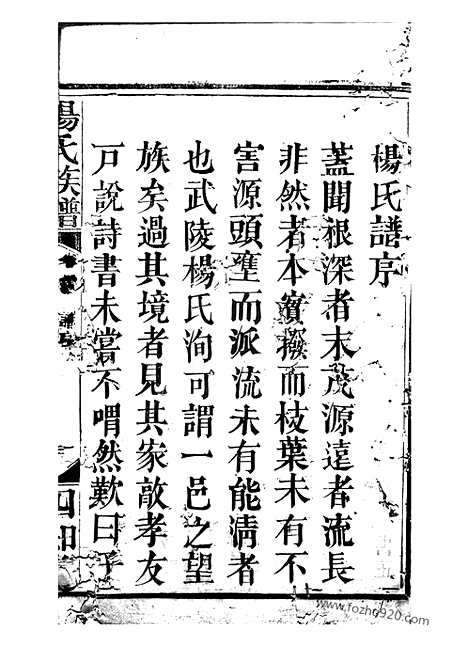 楊氏譜序
蓋聞根深者末茂源遠者流長
非然者本實撥而枝葉未有不
害源頭壅而派流未有能清者
也武陵楊氏洵可謂一邑之望
族矣過其境者見其家敵孝友
戸說詩書未嘗不喟然歎曰予
楊氏族譜
www.fozhu920.com